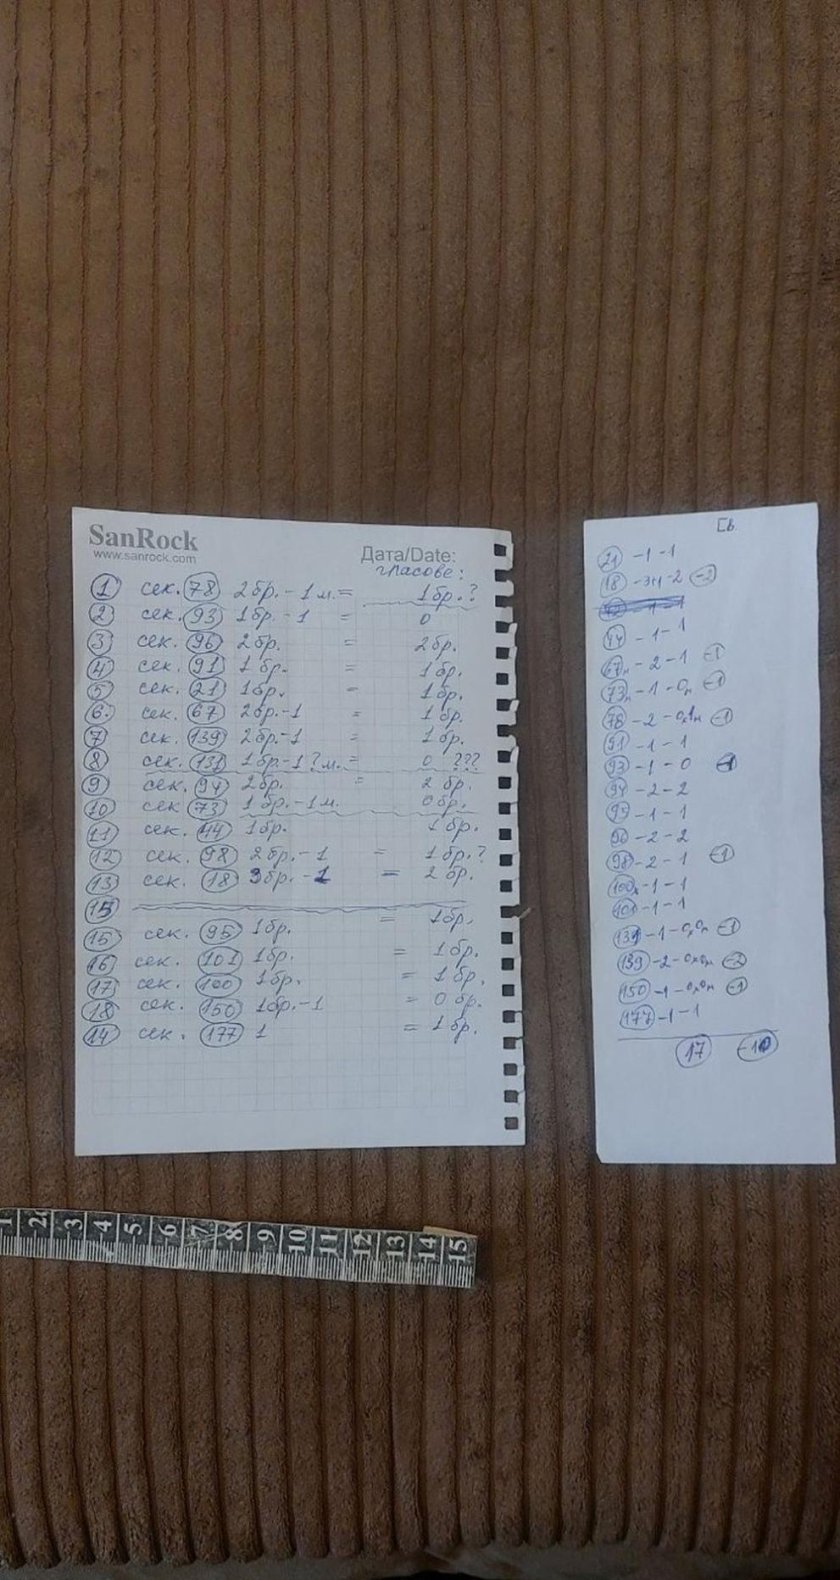 SanRock
www.sanrock.com
Дата/Date:
гласове:
1 сек. 78 2бр. - 1м. = 1бр.?
2 сек. 93 1бр. - 1 = 0
3 сек. 96 2бр. = 2бр.
4 сек. 91 1бр. = 1бр.
5 сек. 21 1бр. = 1бр.
6. сек. 67 2бр. - 1 = 1бр.
7 сек. 139 2бр. - 1 = 1бр.
8 сек. 131 1бр. - 1?м. = 0 ???
9 сек. 94 2бр. = 2бр.
10 сек 73 1бр. - 1м. 0бр.
11 сек. 44 1бр. 1бр.
12 сек. 98 2бр. - 1 = 1бр.?
13 сек. 18 3бр. - 1 = 2бр.
15
15 сек. 95 1бр. = 1бр.
16 сек. 101 1бр. = 1бр.
17 сек. 100 1бр. = 1бр.
18 сек. 150 1бр. - 1 = 0бр.
14 сек. 177 1 = 1бр.
Св.
21 - 1 - 1
18 - 3 -2 -2
44 - 1 - 1
67 - 2 - 1 -1
73 - 1 - 0м -1
78 - 2 -1
91 - 1 - 1
93 - 1 - 0 -1
94 - 2 - 2
95 - 1 - 1
96 - 2 - 2
98 - 2 - 1 -1
100 - 1 - 1
101 - 1 - 1
131 - 1 -1
139 - 2 -2
150 - 1 -1
177 - 1 - 1
17 -10
1 2 3 4 5 6 7 8 9 10 11 12 13 14 15